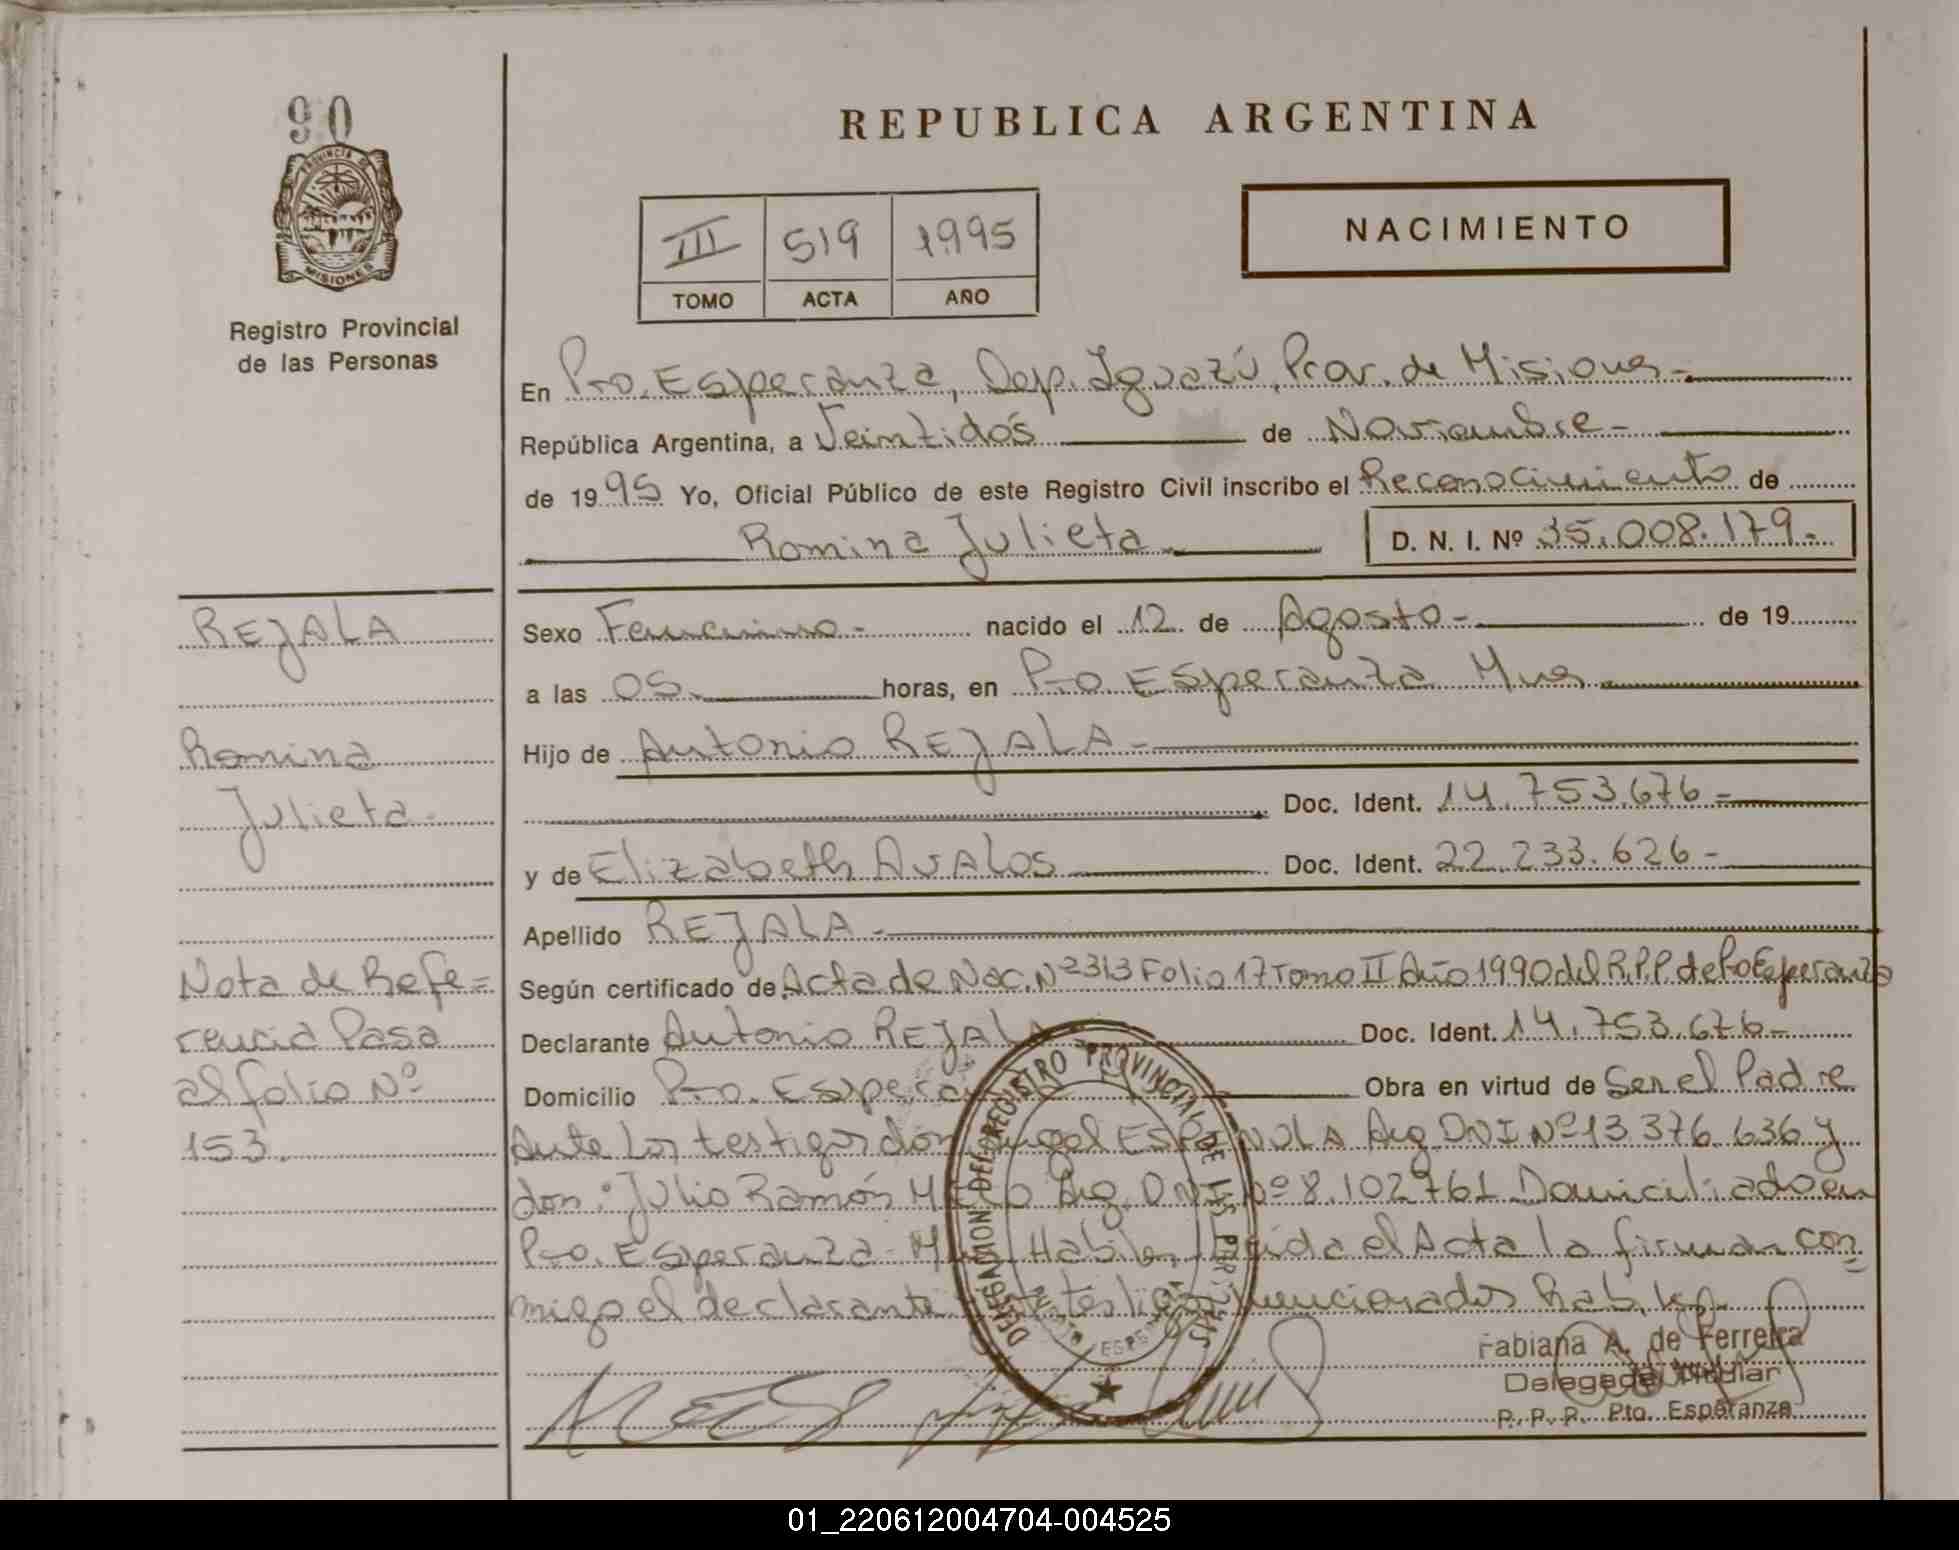 90
PROVINCIA DE
MISIONES
Registro Provincial
de las Personas
REPUBLICA ARGENTINA
III 519 1995
TOMO ACTA AÑO
NACIMIENTO
En Pto. Esperanza, Dep. Iguazú, Prov. de Misiones.-
República Argentina, a Veintidós de Noviembre-
de 1995 Yo, Oficial Público de este Registro Civil inscribo el Reconocimiento de
Romina Julieta.
D. N. I. Nº 35.008.179.-
Sexo Femenino- nacido el 12 de Agosto- de 19
a las 05. horas, en Pto Esperanza Mnes.
Hijo de Antonio REJALA-
Doc. Ident. 14.753.676-
y de Elizabeth AVALOS Doc. Ident. 22.233.626-
Apellido REJALA-
Según certificado de Acta de Nac. Nº 313 Folio 17 Tomo II Año 1990 del R.P.P. de Pto Esperanza
Declarante Antonio REJALA Doc. Ident. 14.753.676-
Domicilio Pto. Espera Obra en virtud de Ser el Padre
Ante los testigos don Angel ESPINOLA Arg. DNI Nº 13.376.636 y
don: Julio Ramón Arg. DNI Nº 8.102961 Domiciliado en
Pto. Esperanza- Habiles, leida el Acta la firman con
migo el declarante testigos mencionados habiles.
Fabiana A. de Ferreira
Delegada Titular
R. P. P. Pto. Esperanza
REJALA
Romina
Julieta-
Nota de Refe=
rencia Pasa
al folio Nº
153.
DELEGACION DEL REGISTRO PROVINCIAL DE LAS PERSONAS
01_220612004704-004525